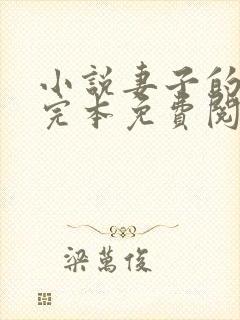 小説妻子的
完本免費閱
梁萬俊